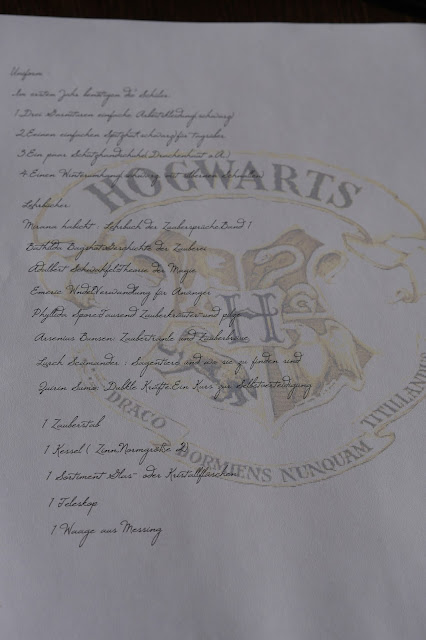 Uniform
Im ersten Jahr benötigen die Schüler:
1.Drei Garnituren einfache Arbeitskleidung(schwarz)
2.Einen einfachen Spitzhut(schwarz)für tagsüber
3.Ein paar Schutzhandschuhe(Drachenhaut o.Ä.)
4.Einen Winterumhang(schwarz, mit silbernen Schnallen)
HOGWARTS
Lehrbücher:
Miranda habicht : Lehrbuch der Zaubersprüche Band 1
Bathilda Bagshot:Geschichte der Zauberei
Adalbert Schwahfel:Theorie der Magie
Emeric Wendel:Verwandlung für Anfänger
Phyllida Spore:Tausend Zauberkräuter und pilze
Arsenius Bunsen: Zaubertränke und Zauberbräue
Lurch Scamander : Sagentiere und wie sie zu finden sind
Quirin Sumo :Dunkle Kräfte.Ein Kurs zur Selbstverteidigung
DRACO DORMIENS NUNQUAM TITILLANDUS
1 Zauberstab
1 Kessel ( Zinn,Normgröße 2)
1 Sortiment Glas- oder Kristallfläschchen
1 Teleskop
1 Waage aus Messing